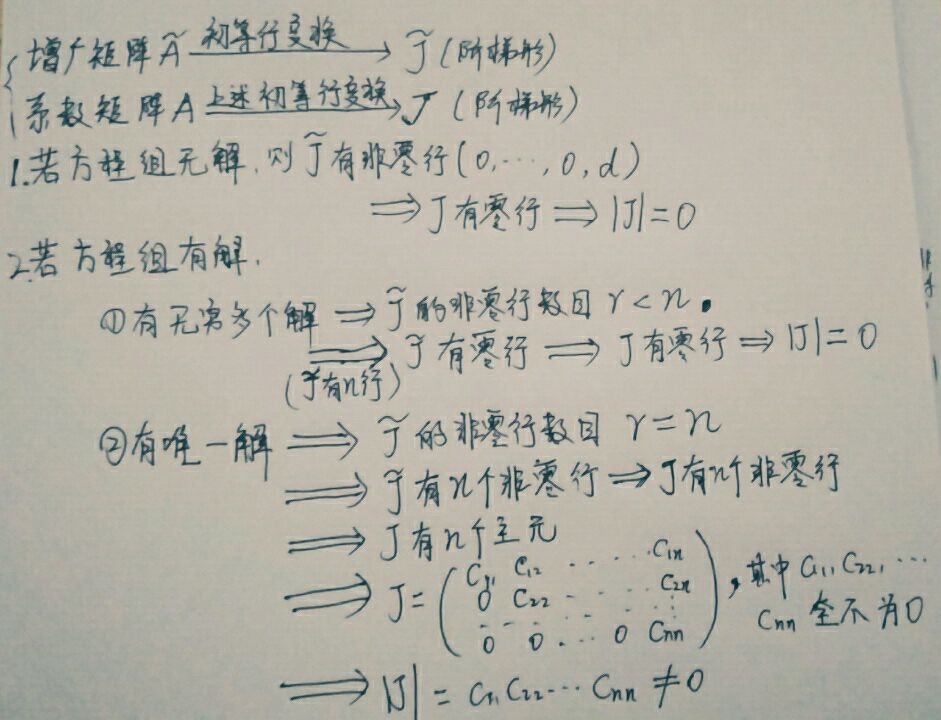 增广矩阵Ã 初等行变换 → J̃ (阶梯形)
系数矩阵A 上述初等行变换 → J (阶梯形)
1.若方程组无解,则J̃有非零行(0,⋯,0,d)
⇒ J有零行 ⇒ |J|=0
2.若方程组有解,
①有无穷多个解 ⇒ J̃的非零行数目 r<n.
⇒ J̃有零行 ⇒ J有零行 ⇒ |J|=0
(J̃有n行)
②有唯一解 ⇒ J̃的非零行数目 r=n
⇒ J̃有n个非零行 ⇒ J有n个非零行
⇒ J有n个主元
⇒ J= ( C11 C12 ⋯⋯ C1n
0 C22 ⋯⋯ C2n ,其中C11,C22,⋯
⋯⋯⋯ Cnn全不为0
0 0 ⋯ 0 Cnn )
⇒ |J| = C11C22⋯Cnn ≠0